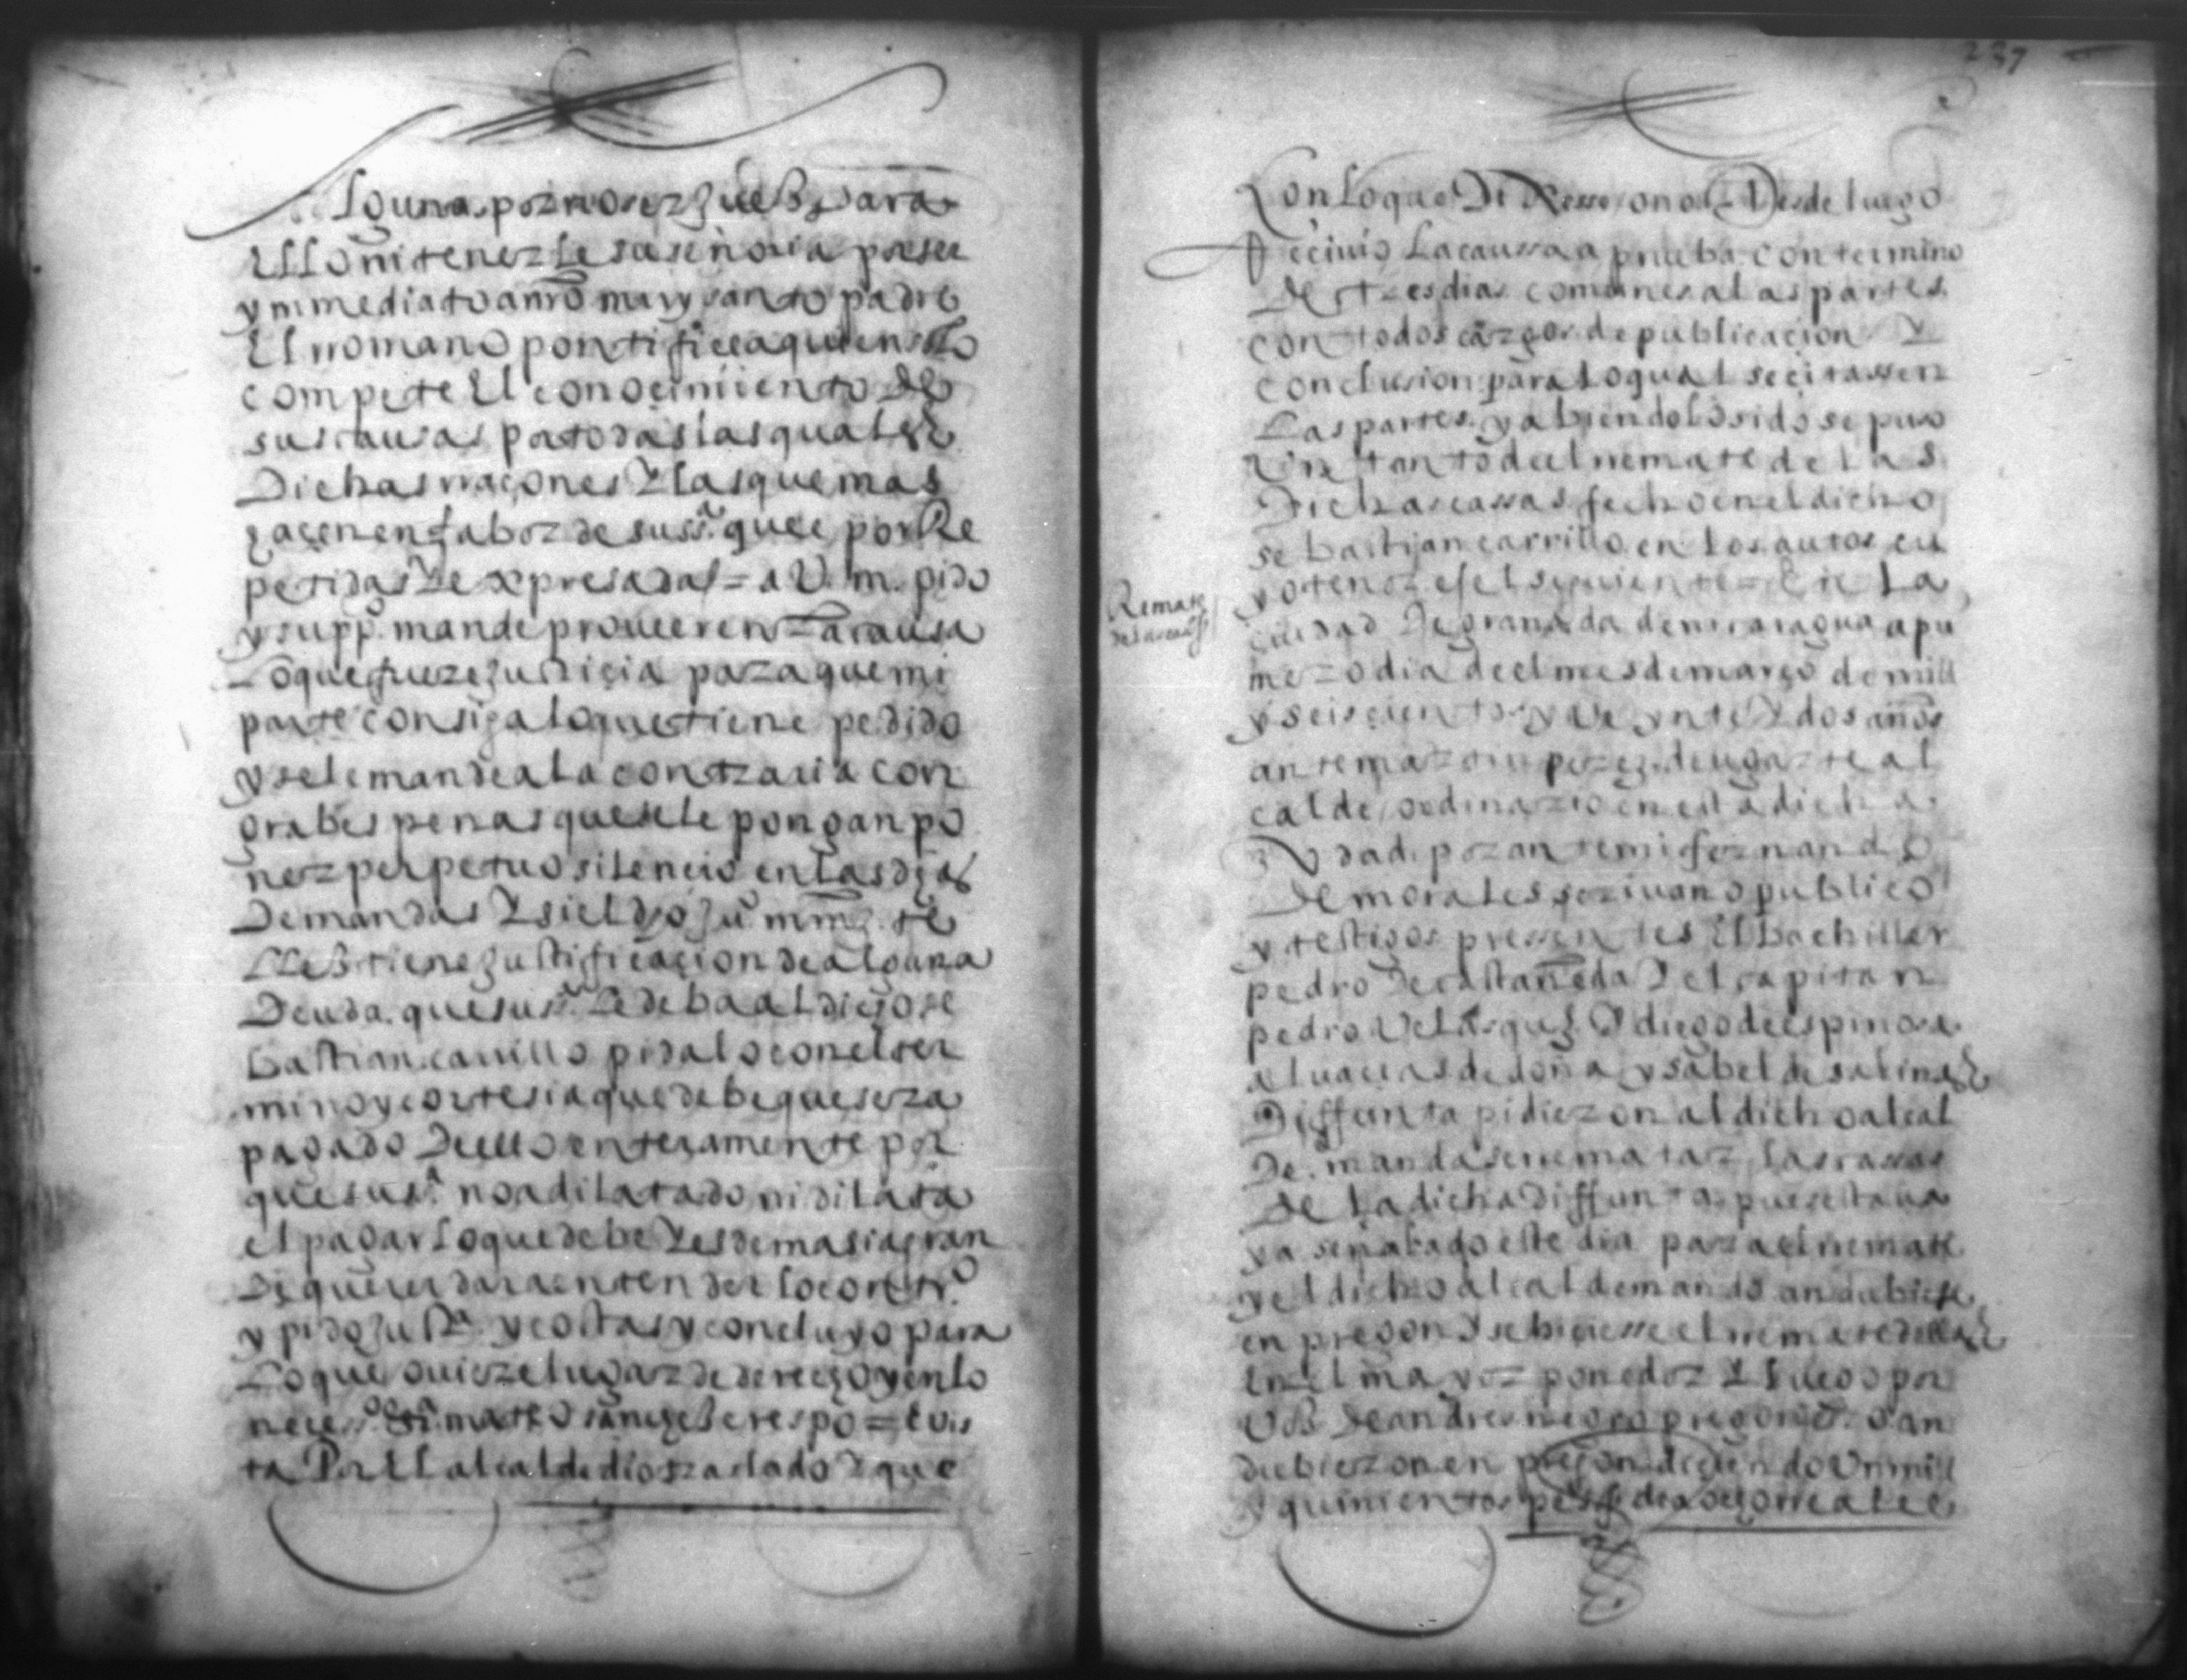 lguna por no ser jueß para
ello ni tener le su señoria por ser
ymmediato a nro muy santo padre
el rromano pontifice a quien solo
compete el conocimiento de
sus causas por todas las quales
dichas rraçones y las que mas
haçen en fabor de su ssª. que e por re
petidas y expresadas = a V. m. pido
y suppco. mande proueer en la causa
lo que fuere justiçia para que mi
parte consiga lo que tiene pedido
y se le mande a la contraria con
grabes penas que se le pongan po
ner perpetuo silencio en las dhas
demandas y si el dho juº mrnz. te
lleß tiene justificaçion de alguna
deuda que su ssª. le deba al dicho se
bastian carrillo pidalo con el ter
mino y cortesia que debe que sera
pagado de ello enteramente por
que su ssª. no a dilatado ni dilata
el pagar lo que debe y es demasia gran
de querer dar a entender lo contrº.
y pido justª. y costas y concluyo para
lo que ouiere lugar de derecho y en lo
neceº. mateo sanchez crespo = e vis
ta por el alcalde dio traslado y que
237
Con lo que de rressº ono Desde luego
Reciuio la caussa a prueba con termino
de tres dias comunes a las partes
con todos cargos de publicaçion y
conclusion para lo qual se citassen
las partes y abiendolo sido se puso
vn tanto de el rremate de las
dichas cassas fecho en el dicho
sebastian carrillo en los autos cu
yo tenor es el siguiente = En la
Remate
de las cassas
ciudad de granada de nicaragua a pri
mero dia de el mes de março de mill
y seiscientos y veynte y dos años
ante martin perez de ugarte al
calde ordinario en esta dicha
ziudad por ante mi fernando
de morales escriuano publico
y testigos pressentes el bachiller
pedro de castañeda y el capitan
pedro velasquez y diego de espinosa
aluaçeas de doña ysabel de salinas
diffunta pidieron al dicho alcal
de mandase rrematar las cassas
de la dicha diffunta pues estaua
ya señalado este dia para el rremate
y el dicho alcalde mando andubiese
en pregon y se hiciesse el rremate dellas
en el mayor ponedor y luego por
voß de andres negro pregonero an
dubieron en pregon diciendo vn mill
y quinientos pesos de a ocho rreales